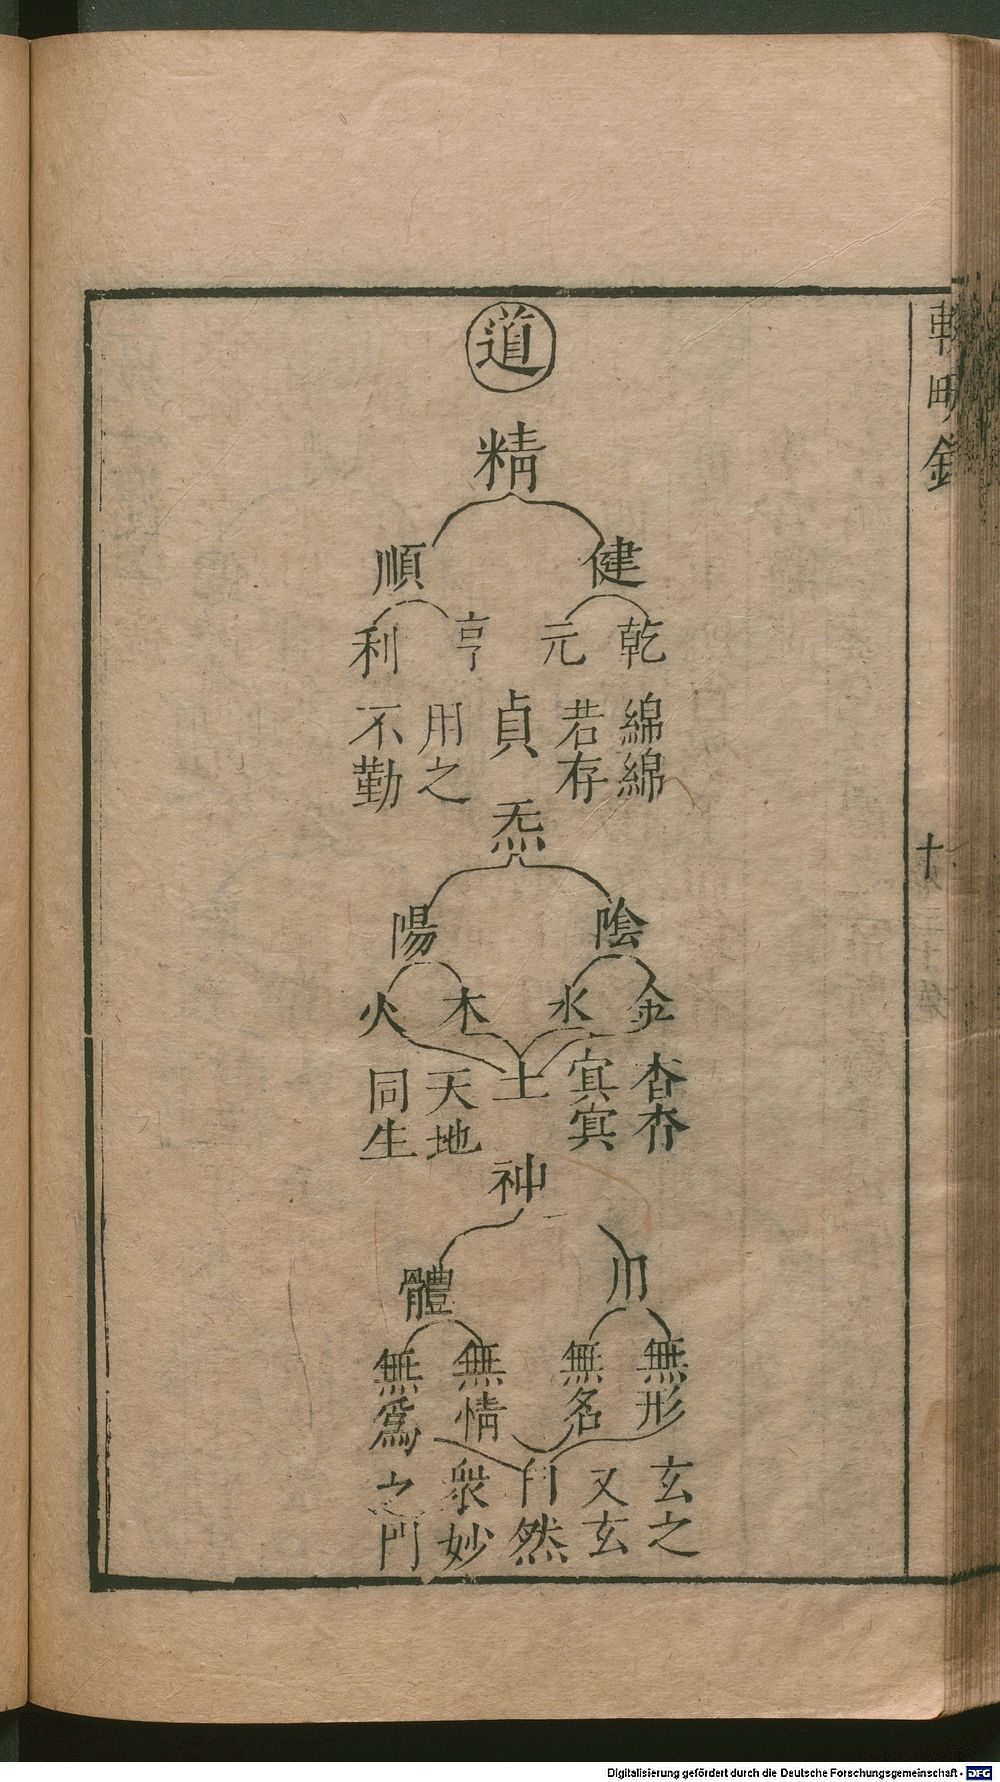 輟畊錄
十
道
精
健 順
乾 元 亨 利
綿綿 若存 貞 用之 不勤
炁
陰 陽
金 水 木 火
杳杳 㝠㝠 土 天地 同生
神
用 體
無形 無名 無情 無爲
玄之 又玄 自然 衆妙 之門
Digitalisierung gefördert durch die Deutsche Forschungsgemeinschaft - DFG